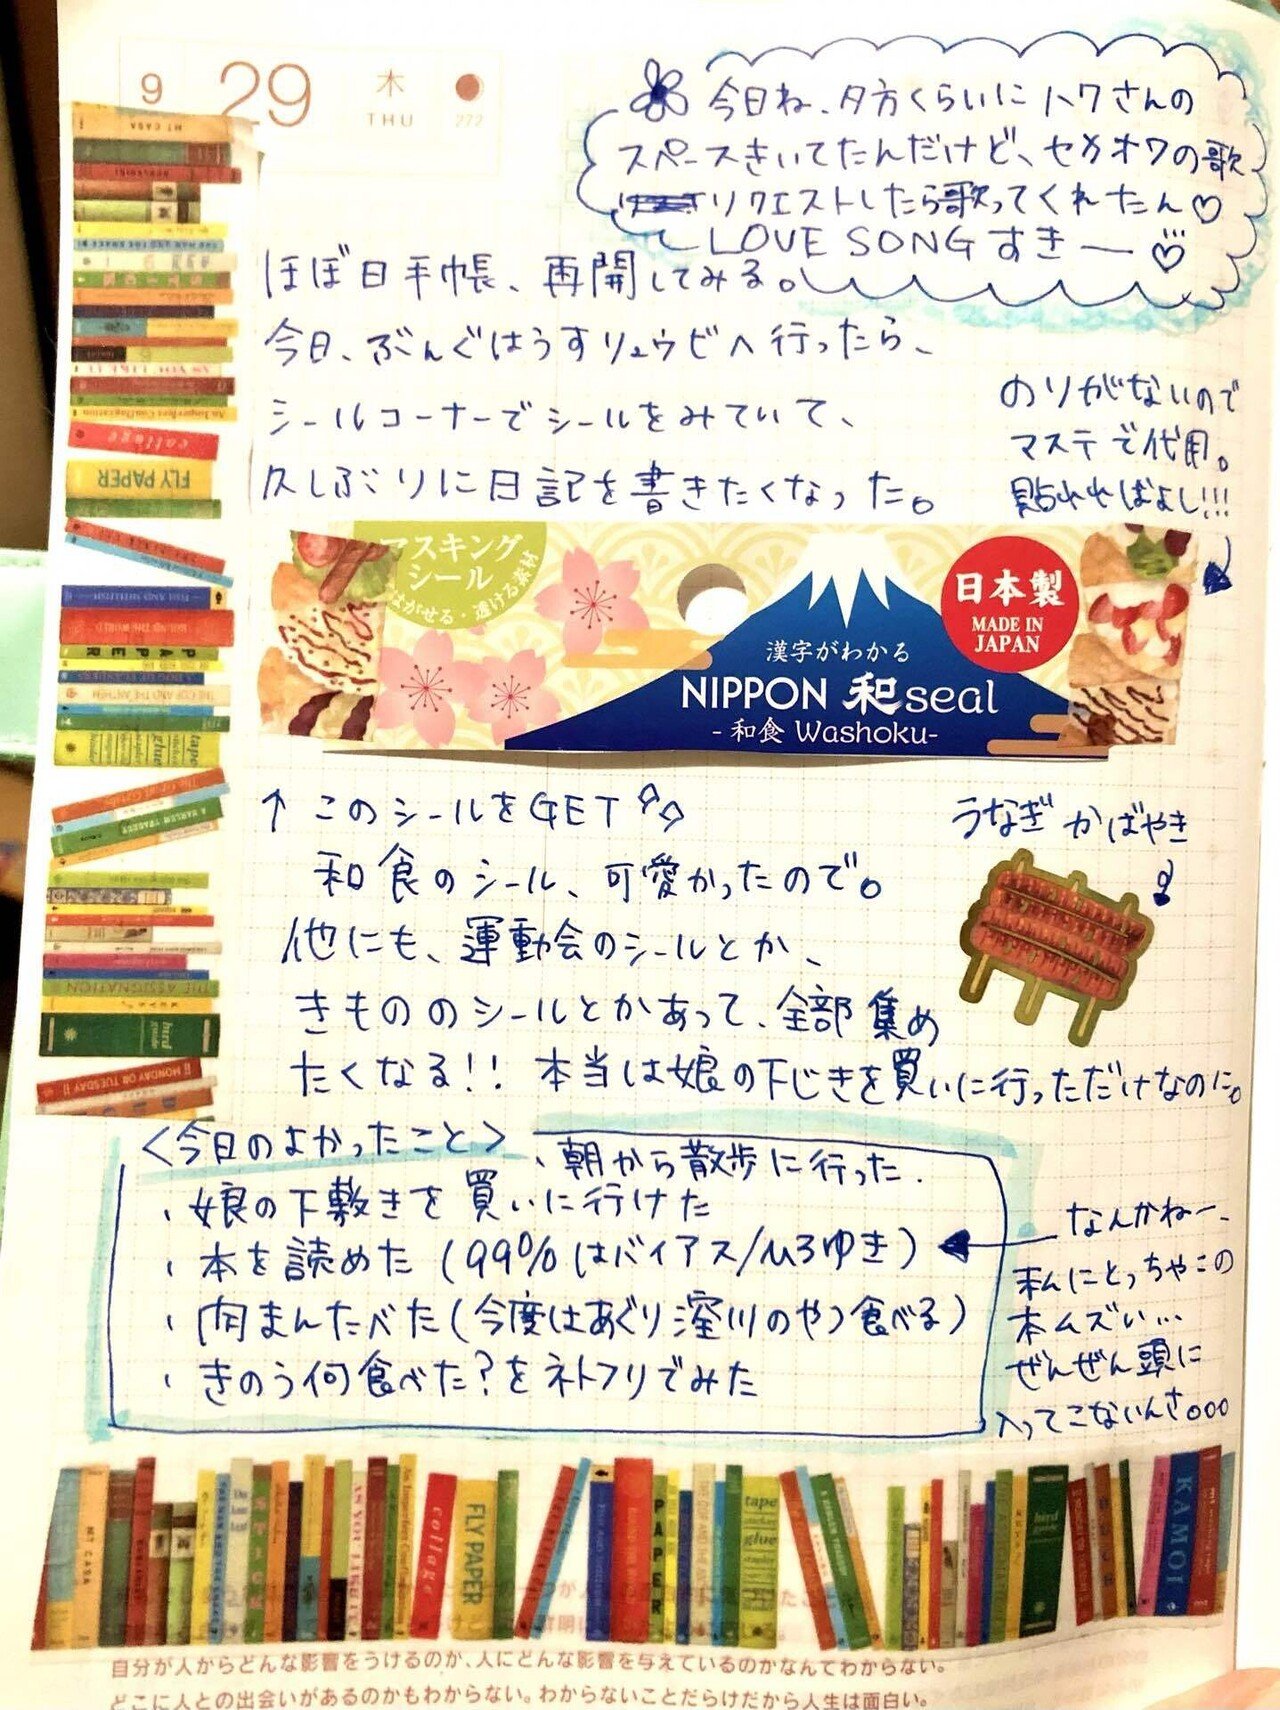 9 29 木
THU 272
今日ね、夕方くらいにハワさんの
スペースきいてたんだけど、セカオワの歌
リクエストしたら歌ってくれたん♡
LOVE SONG すきー♡
ほぼ日手帳、再開してみる。
今日、ぶんぐはうすリュウビへ行ったら、
シールコーナーでシールをみていて、
久しぶりに日記を書きたくなった。
のりがないので
マステで代用。
貼れればよし!!!
マスキング
シール
はがせる・透ける素材
日本製
MADE IN
JAPAN
漢字がわかる
NIPPON 和seal
-和食 Washoku-
↑このシールをGET
和食のシール、可愛かったので。
他にも、運動会のシールとか、
きもののシールとかあって、全部集め
たくなる!! 本当は娘の下じきを買いに行っただけなのに。
うなぎ かばやき
<今日のよかったこと>
・朝から散歩に行った.
・娘の下敷きを買いに行けた
・本を読めた(99%はバイアス/ひろゆき)
・肉まんたべた(今度はあぐり窪川のやつ食べる)
・きのう何食べた?をネトフリでみた
なんかねー、
私にとっちゃこの
本ムズい...
ぜんぜん頭に
入ってこないんさ。。。
MT CASA
collage
FLY PAPER
PAPER
tape
glue
THE ASSIGNATION
bird
guide
MONDAY OR TUESDAY
MT CASA
STICK
AS YOU LIKE IT
collage
FLY PAPER
PAPER
tape
glue
bird
guide
KAMOI
自分が人からどんな影響をうけるのか、人にどんな影響を与えているのかなんてわからない。
どこに人との出会いがあるのかもわからない。わからないことだらけだから人生は面白い。